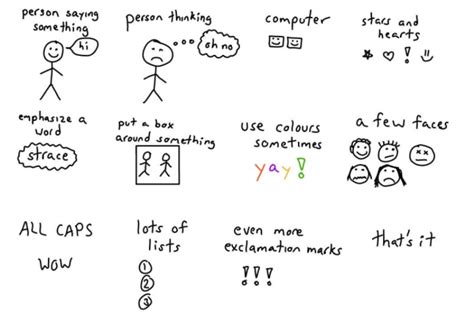 person saying
something
hi
person thinking
oh no
computer
stars and
hearts
!
emphasize a
word
strace
put a box
around something
use colours
sometimes
yay!
a few faces
ALL CAPS
WOW
lots of
lists
1
2
3
even more
exclamation marks
!!!
that's it